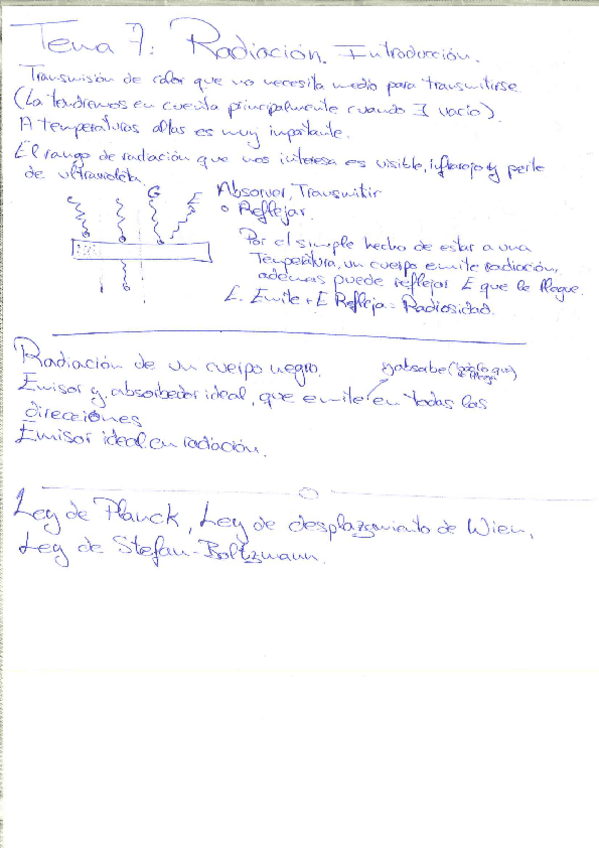 Tema 7: Radiación. Introducción.
Transmisión de calor que no necesita medio para transmitirse
(La tendremos en cuenta principalmente cuando ∃ vacio).
A temperaturas altas es muy importante.
El rango de radiación que nos interesa es visible, infrarojo y parte
de ultravioleta.
G E Absorver, Transmitir
o Reflejar.
Por el simple hecho de estar a una
Temperatura, un cuerpo emite radiación,
ademas puede reflejar E que le llegue.
E. Emite + E Refleja = Radiosidad.
Radiación de un cuerpo negro.
y absorbe (todo lo que le llega)
Emisor y absorbedor ideal, que emite en todas las
direcciones
Emisor ideal en radiación.
Ley de Planck, Ley de desplazamiento de Wien,
Ley de Stefan-Boltzmann.